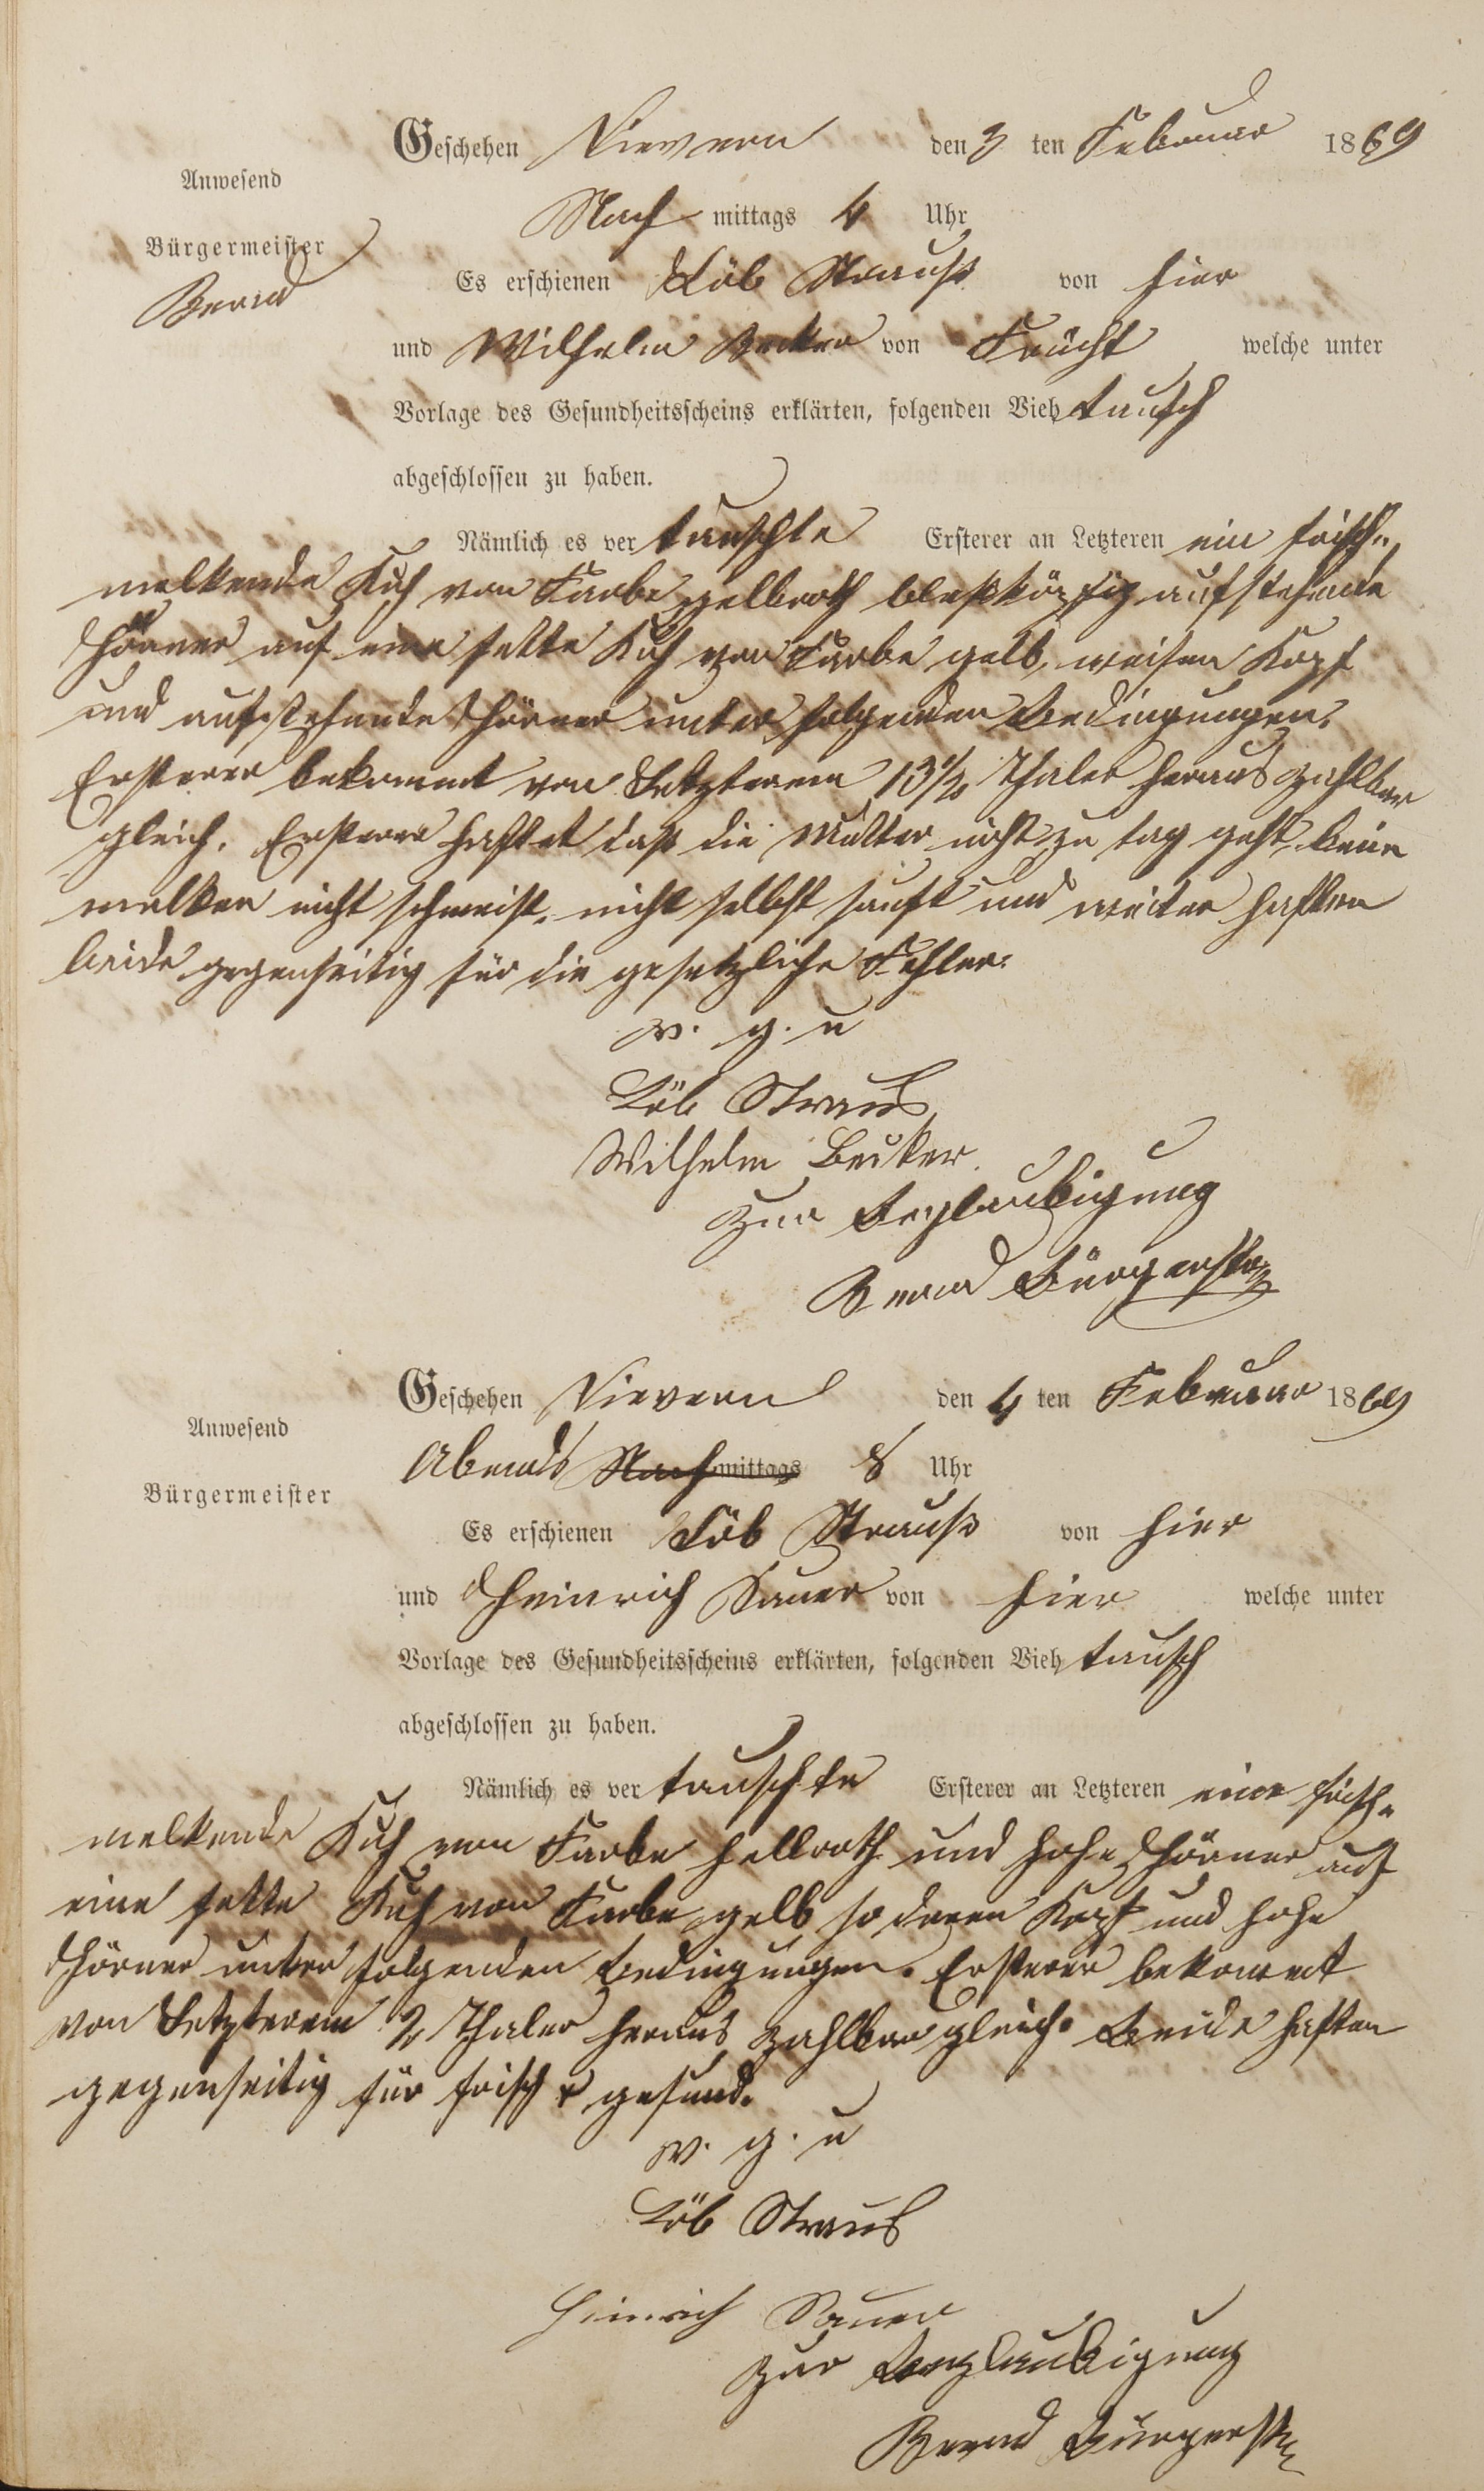 Geschehen Nievern den 3 ten Februar 1869
Anwesend
Nach mittags 4 Uhr
Bürgermeister
Bernd
Es erschienen Löb Strauß von hier
und Wilhelm Becker von Frücht welche unter
Vorlage des Gesundheitsscheins erklärten, folgenden Vieh tausch
abgeschlossen zu haben.
Nämlich es ver tauschte Ersterer an Letzteren ein frisch-
melkende Kuh von Farbe gelbroth bleßköpfig aufstehende
Hörner auf eine fette Kuh von Farbe gelb, weisen Kopf
und aufstehende Hörner unter folgenden Bedingungen.
Ersterer bekommt von Letzterem 13 1/2 Thaler heraus zahlbar
gleich. Ersterer haftet daß die Mutter nicht zu tag geht, beim
melken nicht schmeist, nicht selbst sauft und weiter haften
beide gegenseitig für die gesetzliche Fehler.
v. g. u
Löb Straus
Wilhelm Becker.
Zur Beglaubigung
Bernd Bürgerstr
Geschehen Nievern den 4 ten Februar 1869
Anwesend
Abends Nachmittags 8 Uhr
Bürgermeister
Es erschienen Löb Strauß von hier
und Heinrich Sauer von hier welche unter
Vorlage des Gesundheitsscheins erklärten, folgenden Vieh tausch
abgeschlossen zu haben.
Nämlich es ver tauschte Ersterer an Letzteren eine frisch-
melkende Kuh von Farbe hellroth und hohe Hörner auf
eine fette Kuh von Farbe gelb so deren Kopf und hohe
Hörner unter folgenden Bedingungen. Ersterer bekommt
von Letzterem 2 Thaler heraus zahlbar gleich. Beide haften
gegenseitig für frisch & gesund.
v. g. u
Löb Straus
Heinrich Sauer
Zur Beglaubigung
Bernd Bürgerstr